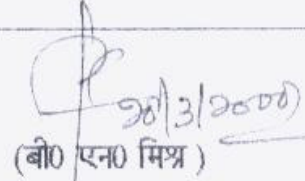 20/3/2000
(बी0 एन0 मिश्र )